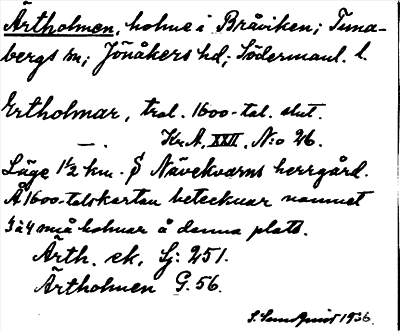 Ärtholmen, holme i Bråviken; Tuna-
bergs sn; Jönåkers hd; Södermanl. l.
Ertholmar, trol. 1600-tal. slut.
—. Kr. A, XXII, N:o 26.
Läge 1½ km. S Nävekvarns herrgård.
Å 1600-talskartan betecknar namnet
3 à 4 små holmar å denna plats.
Ärth. ek. Lj: 251.
Ärtholmen G. 56.
S. Sundqvist 1936.